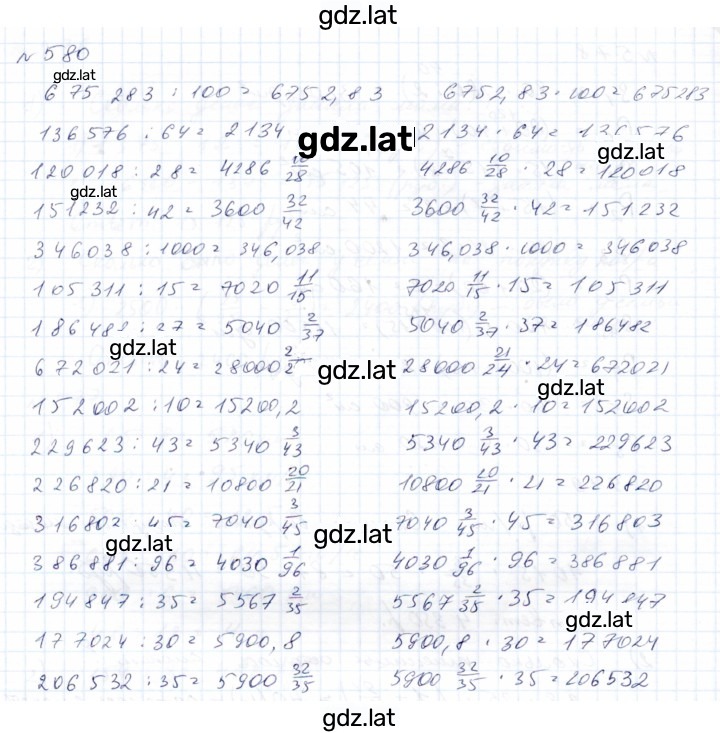 gdz.lat
№ 580
gdz.lat
675 283 : 100 = 6752,83 6752,83 · 100 = 675283
136576 : 64 = 2134 gdz.lat 2134 · 64 = 136576
gdz.lat
120018 : 28 = 4286 10/28 4286 10/28 · 28 = 120018
gdz.lat
151232 : 42 = 3600 32/42 3600 32/42 · 42 = 151232
346038 : 1000 = 346,038 346,038 · 1000 = 346038
105311 : 15 = 7020 11/15 7020 11/15 · 15 = 105311
186482 : 27 = 5040 2/37 5040 2/37 · 37 = 186482
gdz.lat
672021 : 24 = 28000 2 28000 21/24 · 24 = 672021
gdz.lat
gdz.lat
152002 : 10 = 15200,2 15200,2 · 10 = 152002
229623 : 43 = 5340 3/43 5340 3/43 · 43 = 229623
226820 : 21 = 10800 20/21 10800 20/21 · 21 = 226820
316802 · 45 = 7040 3/45 7040 3/45 · 45 = 316803
gdz.lat
gdz.lat
386881 : 96 = 4030 1/96 4030 1/96 · 96 = 386881
194847 : 35 = 5567 2/35 5567 2/35 · 35 = 194847
gdz.lat
177024 : 30 = 5900,8 5900,8 · 30 = 177024
206532 : 35 = 5900 32/35 5900 32/35 · 35 = 206532
gdz.lat